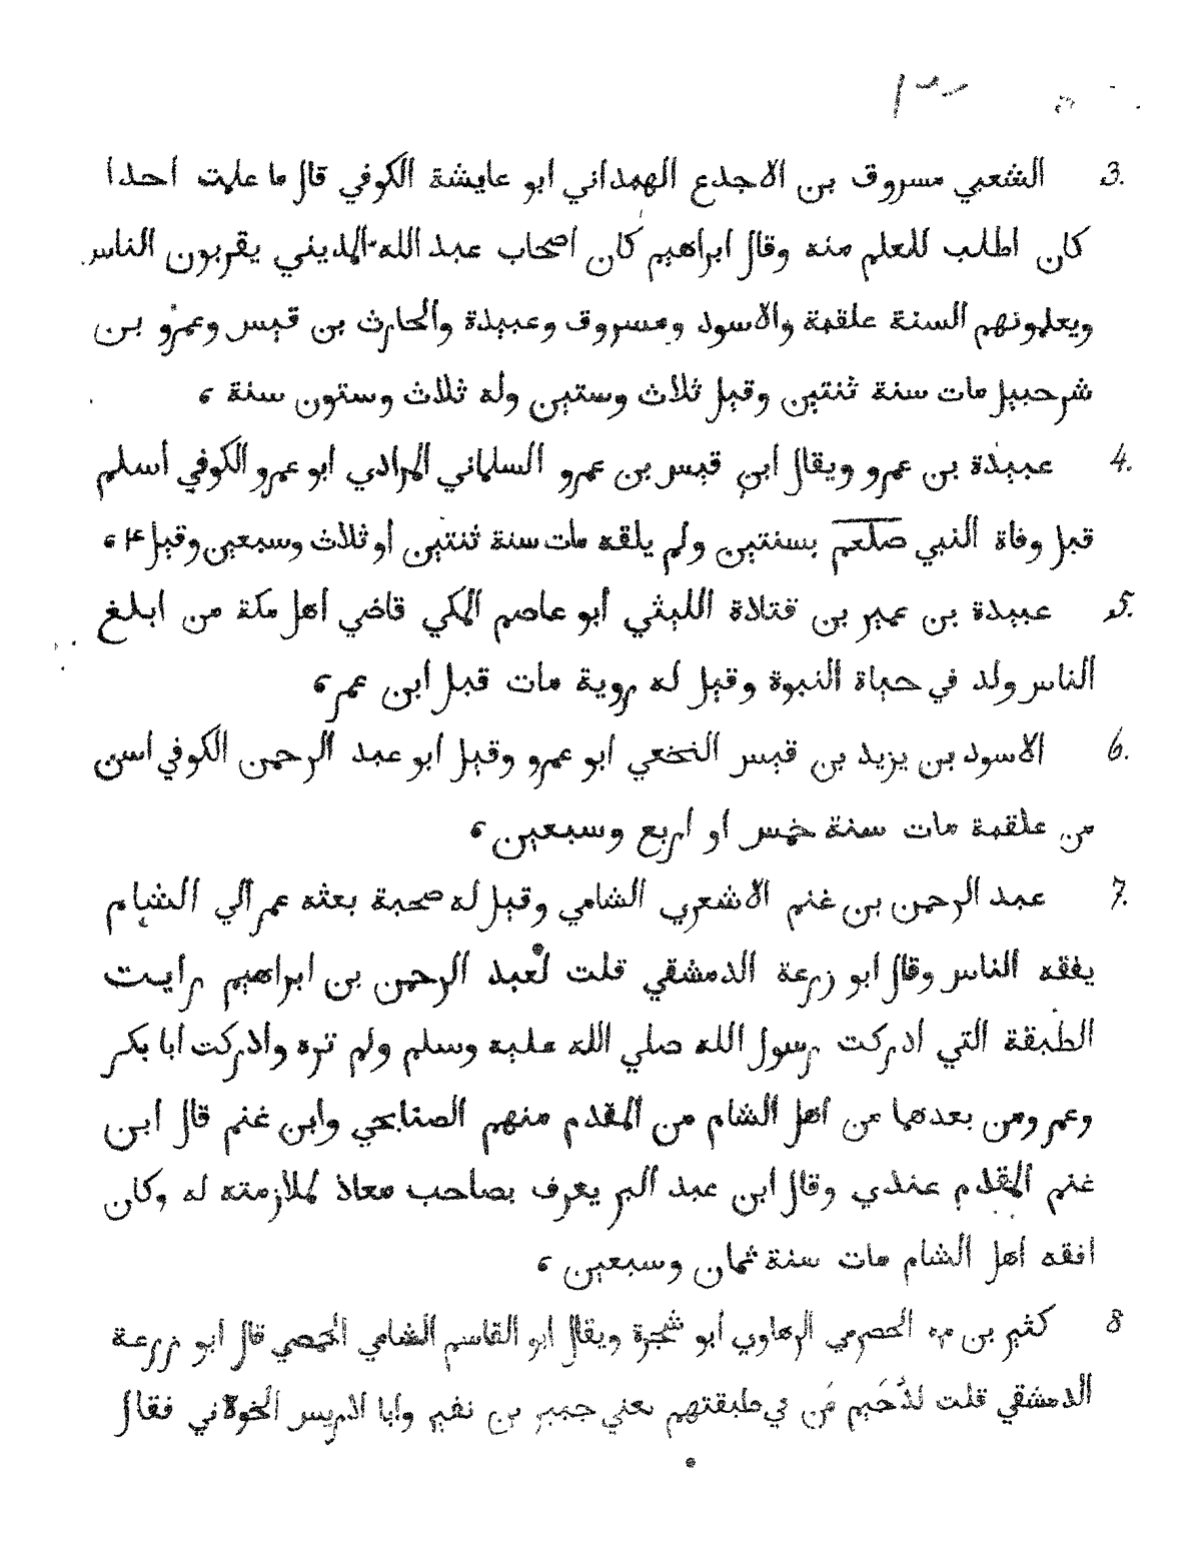 3. الشعبي مسروق بن الاجدع الهمداني ابو عايشة الكوفي قال ما علمت احدا
كان اطلب للعلم منه وقال ابراهيم كان اصحاب عبد الله المديني يقربون الناس
ويعلمونهم السنة علقمة والاسود ومسروق وعبيدة والحارث بن قيس وعمرو بن
شرحبيل مات سنة ثنتين وقيل ثلاث وستين وله ثلاث وستون سنة ،
4. عبيدة بن عمرو ويقال ابن قيس بن عمرو السلماني المرادي ابو عمرو الكوفي اسلم
قبل وفاة النبي صلعم بسنتين ولم يلقه مات سنة ثنتين او ثلاث وسبعين وقيل ،
5. عبيدة بن عمير بن قتلاة الليثي أبو عاصم المكي قاضي اهل مكة من ابلغ
الناس ولد في حياة النبوة وقيل له روية مات قبل ابن عمر ،
6. الاسود بن يزيد بن قيس النخعي ابو عمرو وقيل ابو عبد الرحمن الكوفي اسن
من علقمة مات سنة خمس او اربع وسبعين ،
7. عبد الرحمن بن غنم الاشعري الشامي وقيل له صحبة بعثه عمر الي الشام
يفقه الناس وقال ابو زرعة الدمشقي قلت لعبد الرحمن بن ابراهيم رايت
الطبقة التي ادركت رسول الله صلي الله عليه وسلم ولم تره وادركت ابا بكر
وعمر ومن بعدهما من اهل الشام من المقدم منهم الصنابحي وابن غنم قال ابن
غنم المقدم عندي وقال ابن عبد البر يعرف بصاحب معاذ لملازمته له وكان
افقه اهل الشام مات سنة ثمان وسبعين ،
8 كثير بن مره الحضرمي الرهاوي أبو شجرة ويقال ابو القاسم الشامي الحمصي قال ابو زرعة
الدمشقي قلت لدُحَيم مَن في طبقتهم يعني جبير بن نفير وابا ادريس الخولاني فقال